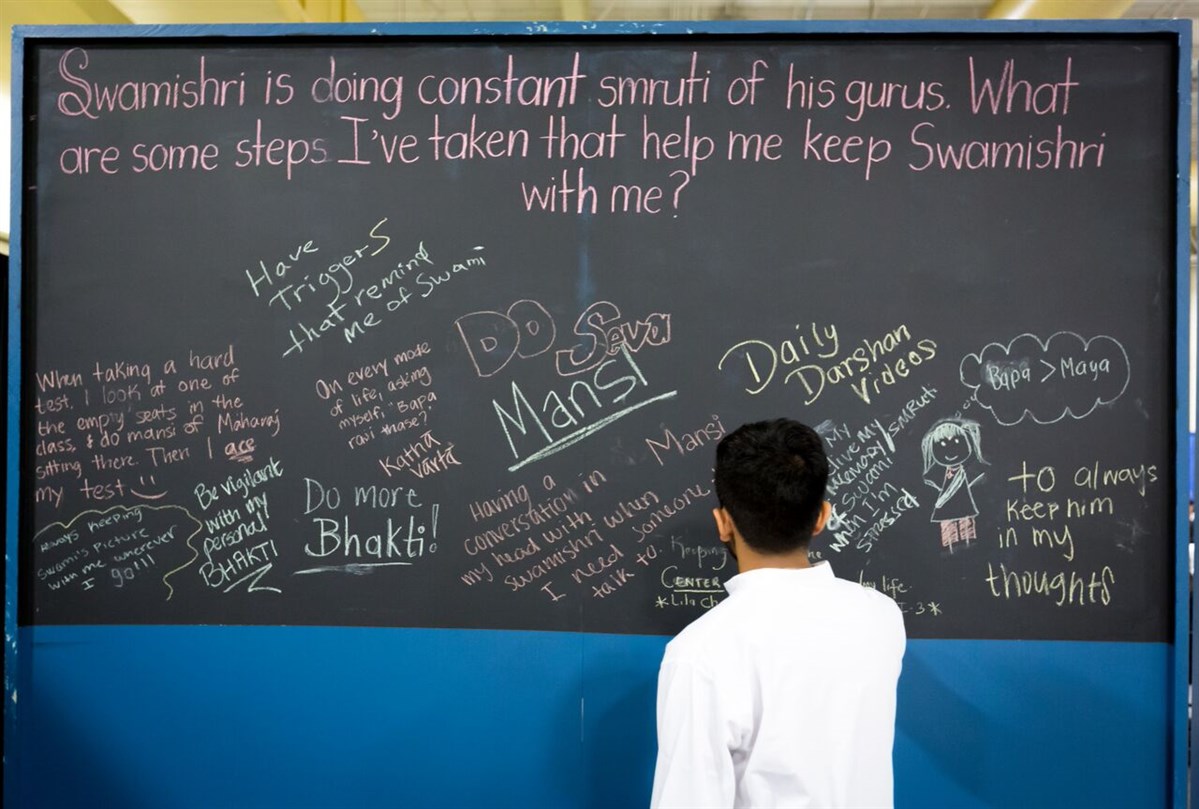 Swamishri is doing constant smruti of his gurus. What
are some steps I've taken that help me keep Swamishri
with me?
Have
Triggers
that remind
me of Swami
DO Seva
Mansi
Daily
Darshan
Videos
Bapa > Maya
When taking a hard
test. I look at one of
the empty seats in the
class, & do mansi of Maharaj
sitting there. Then I ace
my test
On every mode
of life, asking
myself, "Bapa
raji thase?"
Katha
Varta
Always keeping
Swami's picture
with me wherever
I go!!!
Be vigilant
with my
personal
BHAKTI
Do more
Bhakti!
Mansi
Having a
conversation in
my head with
swamishri when
I need someone
talk to.
My
live my
memory/smruti
of Swami
when I'm
stressed
to always
keep him
in my
thoughts
Keeping
CENTER
my life